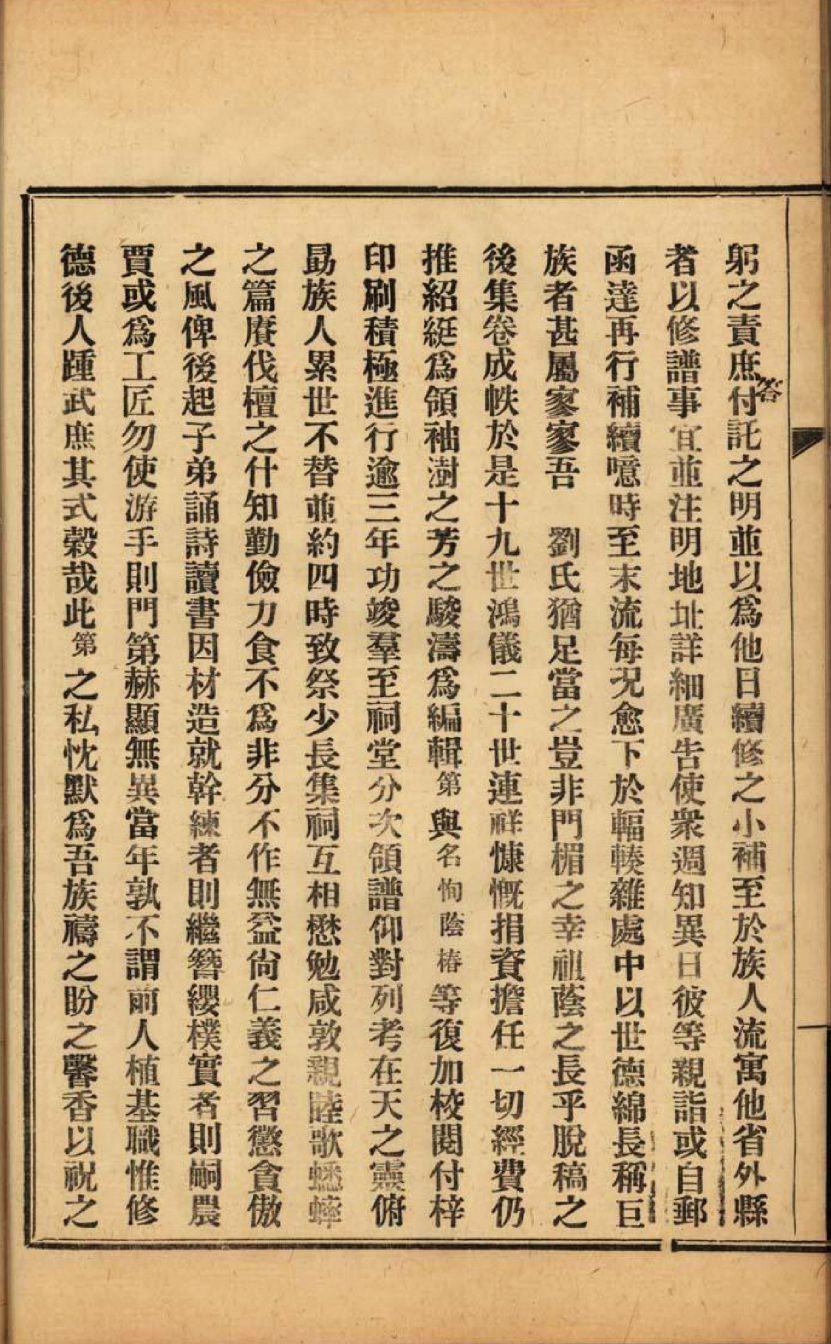 躬之責庶答付託之明並以爲他日續修之小補至於族人流寓他省外縣
者以修譜事宜並注明地址詳細廣告使衆週知異日彼等親詣或自郵
函達再行補續噫時至末流每况愈下於輻輳雜處中以世德綿長稱巨
族者甚屬寥寥吾　劉氏猶足當之豈非門楣之幸祖蔭之長乎脫稿之
後集卷成帙於是十九世鴻儀二十世連祥慷慨捐資擔任一切經費仍
推紹綎爲領袖澍之芳之駿濤爲編輯第與名恂蔭椿等復加校閱付梓
印刷積極進行逾三年功竣羣至祠堂分次領譜仰對列考在天之靈俯
勗族人累世不替並約四時致祭少長集祠互相懋勉咸敦親睦歌蟋蟀
之篇賡伐檀之什知勤儉力食不爲非分不作無益尙仁義之習懲貪傲
之風俾後起子弟誦詩讀書因材造就幹練者則繼簪纓樸實者則嗣農
賈或爲工匠勿使游手則門第赫顯無異當年孰不謂前人植基職惟修
德後人踵武庶其式穀哉此第之私忱默爲吾族禱之盼之馨香以祝之